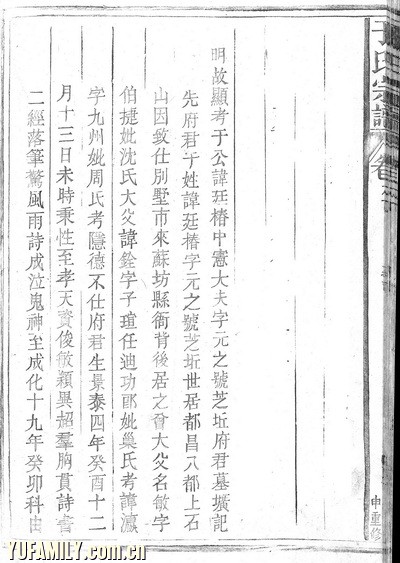 于氏宗譜 卷
明故顯考于公諱廷椿中憲大夫字元之號芝坵府君墓壙記
先府君于姓諱廷椿字元之號芝坵世居都昌八都上石
山因致仕別墅市來蘇坊縣衙背後居之曾大父名敏字
伯捷妣沈氏大父諱銓字子瑄任迪功郎妣巢氏考諱瀛
字九州妣周氏考隱德不仕府君生景泰四年癸酉十二
月十三日未時秉性至孝天資俊敏穎異超羣胸貫詩書
二經落筆驚風雨詩成泣鬼神至成化十九年癸卯科由
申重修
YUFAMILY.com.cn